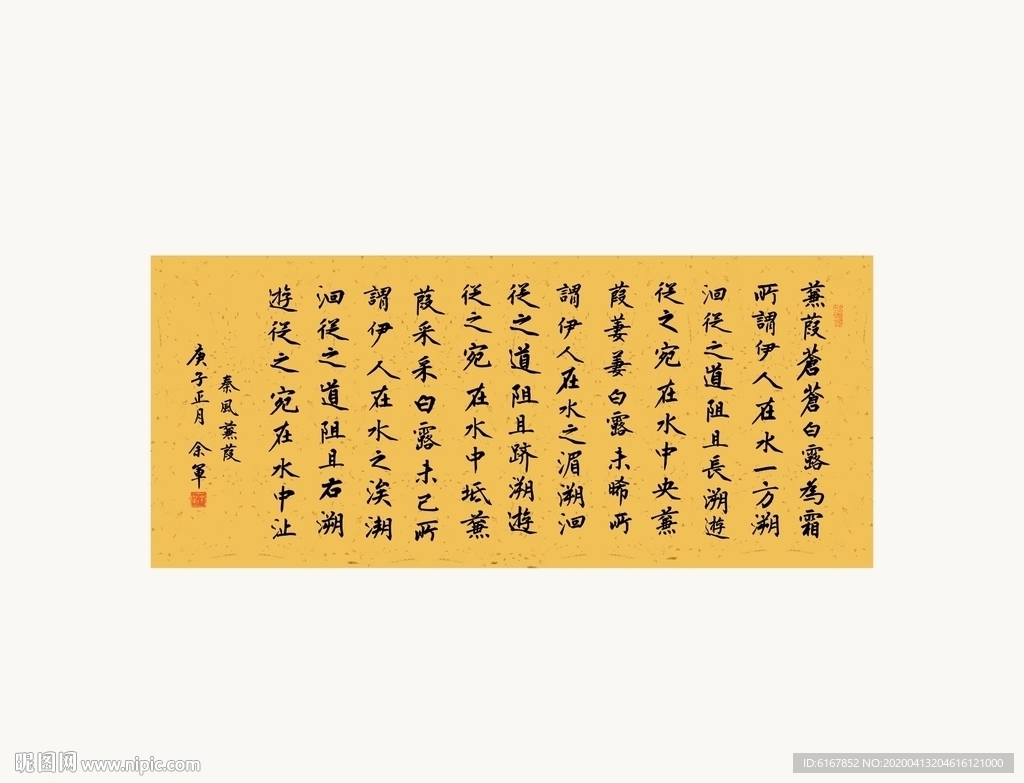 蒹葭蒼蒼白露為霜
所謂伊人在水一方溯
洄従之道阻且長溯遊
従之宛在水中央蒹
葭萋萋白露未晞所
謂伊人在水之湄溯洄
従之道阻且跻溯遊
従之宛在水中坻蒹
葭采采白露未已所
謂伊人在水之涘溯
洄従之道阻且右溯
遊従之宛在水中沚
秦風蒹葭
庚子正月 余軍
昵图网 www.nipic.com
ID:6167852 NO:20200413204616121000